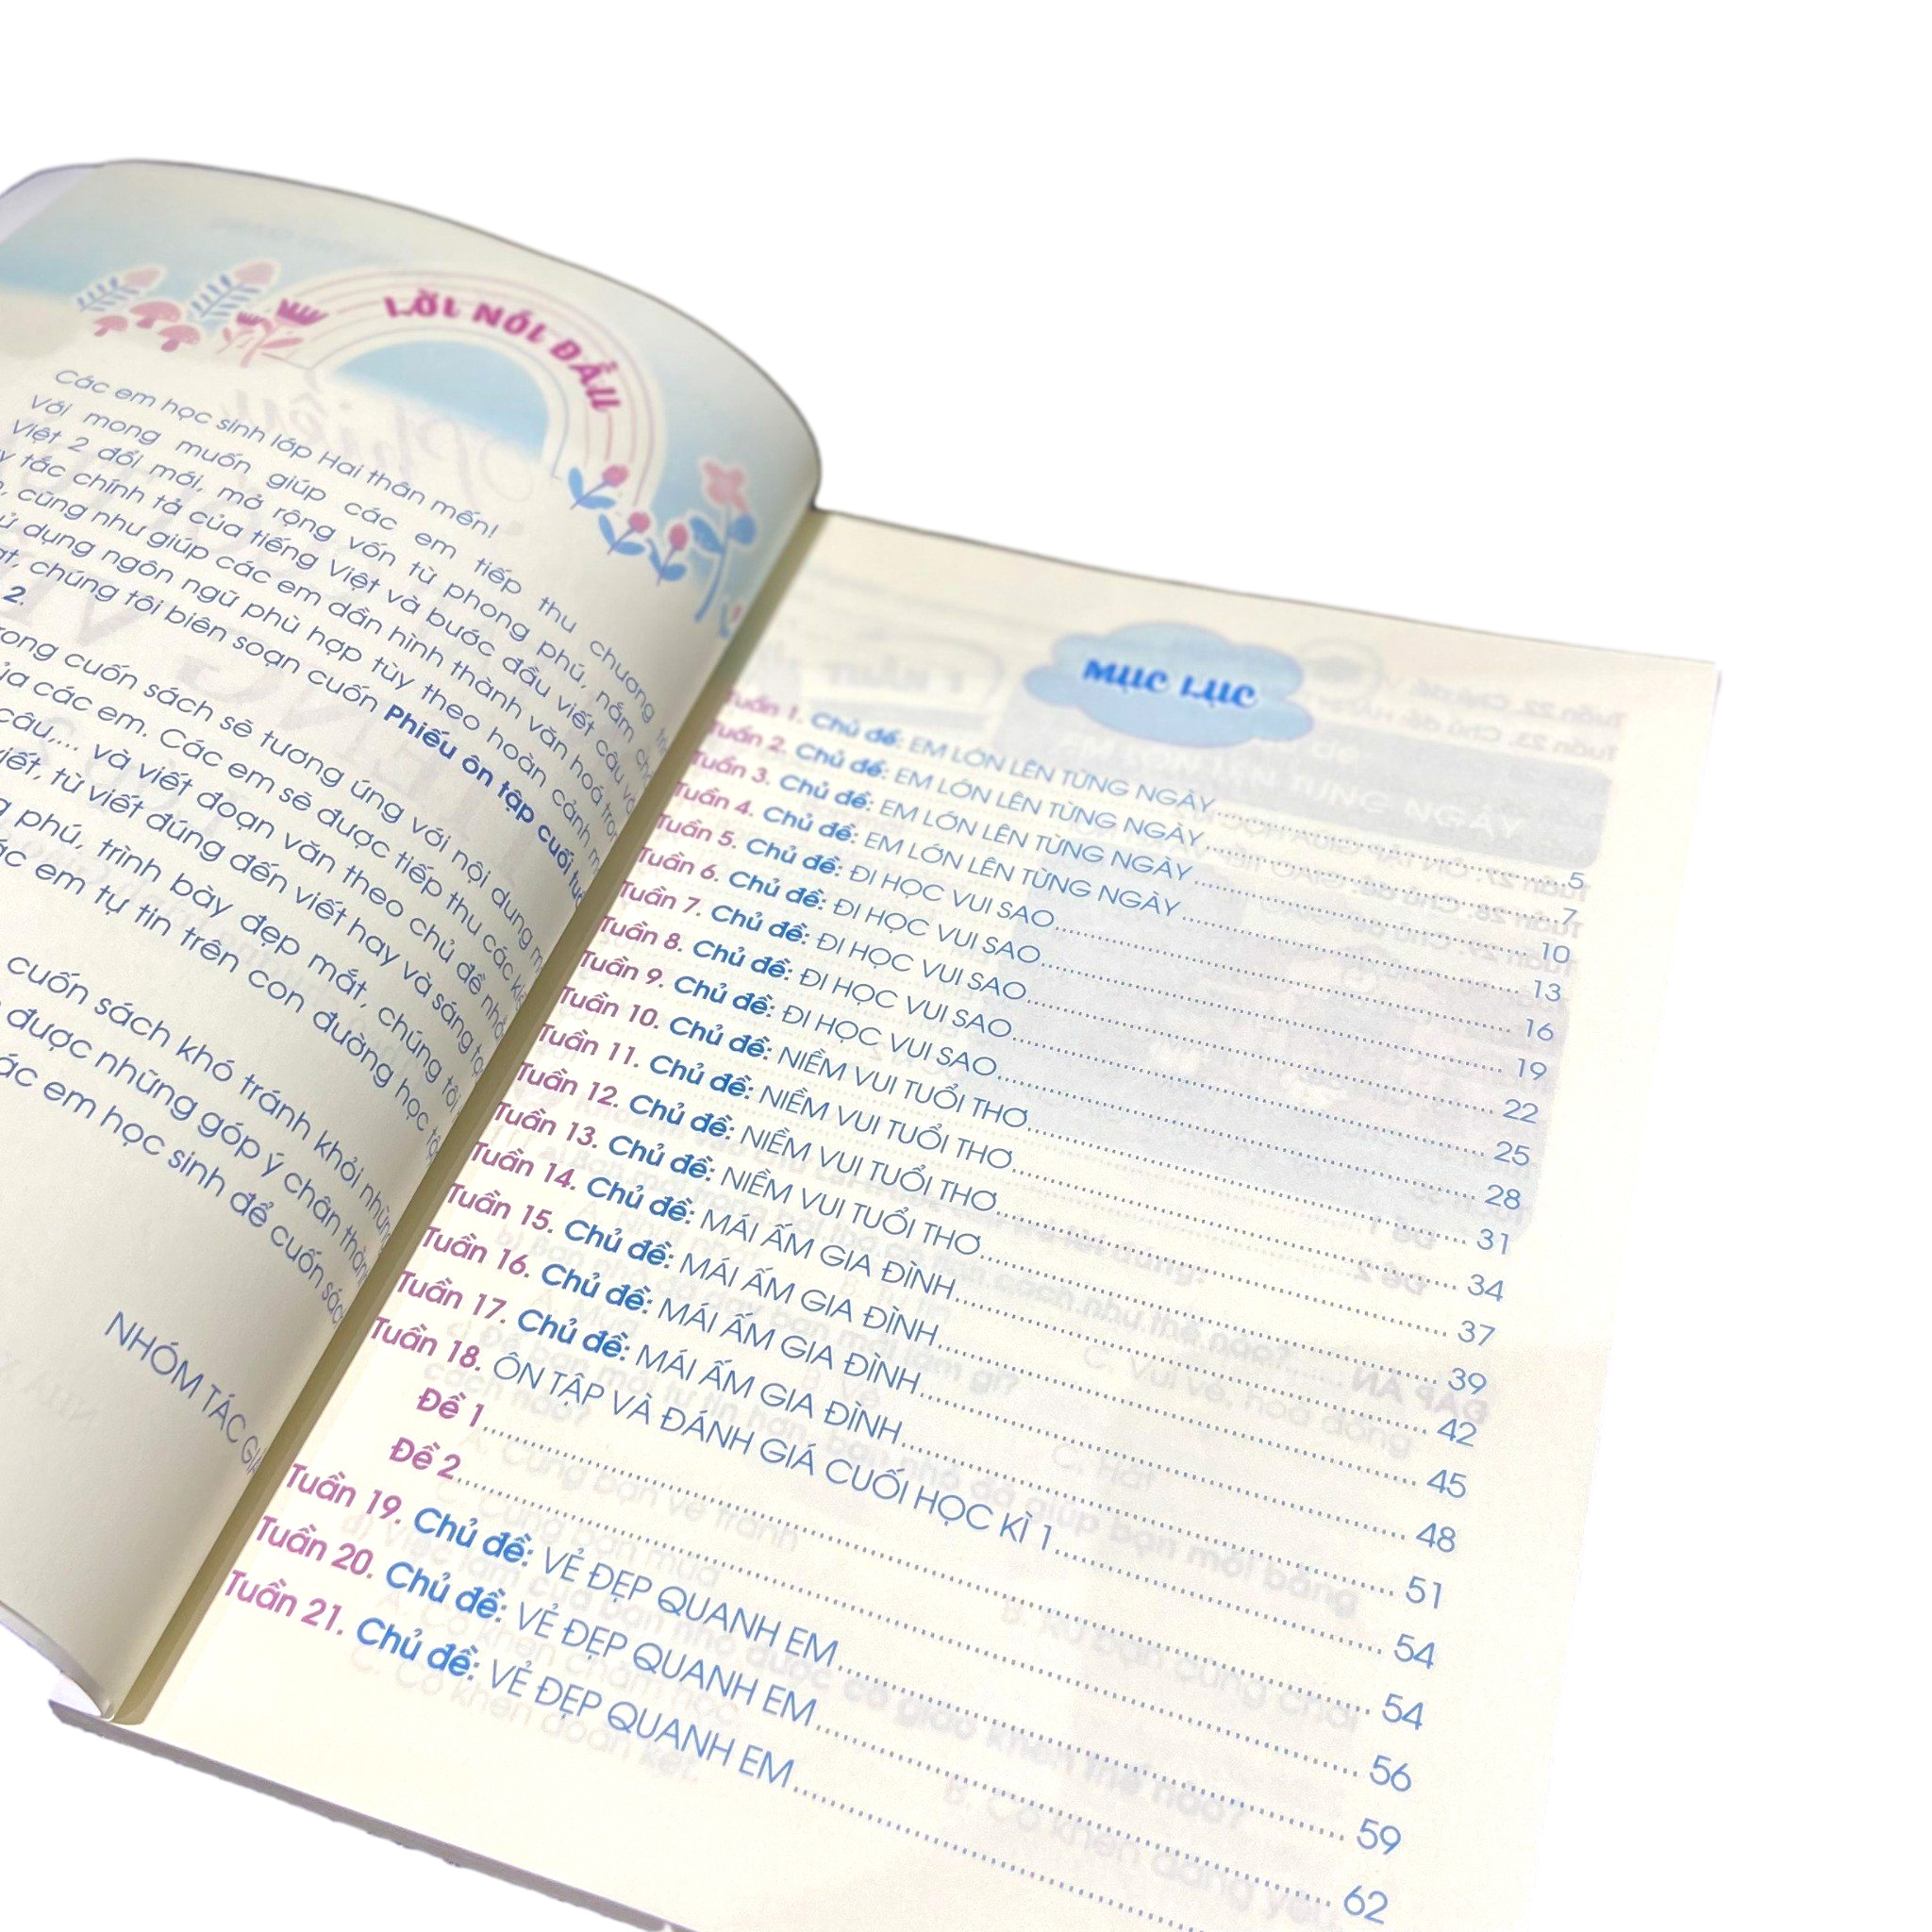 LỜI NÓI ĐẦU
Các em học sinh lớp Hai thân mến!
Với mong muốn giúp các em tiếp thu chương
Việt 2 đổi mới, mở rộng vốn từ phong phú, nắm
tắc chính tả của tiếng Việt và bước đầu viết câu
cũng như giúp các em dần hình thành văn hoá
dụng ngôn ngữ phù hợp tùy theo hoàn cảnh
chúng tôi biên soạn cuốn Phiếu ôn tập cuối
2.
cuốn sách sẽ tương ứng với nội dung
của các em. Các em sẽ được tiếp thu các
câu,... và viết đoạn văn theo chủ đề
viết, từ viết đúng đến viết hay và sáng
phú, trình bày đẹp mắt, chúng tôi
em tự tin trên con đường học
cuốn sách khó tránh khỏi
được những góp ý chân
em học sinh để cuốn
NHÓM TÁC
MỤC LỤC
Tuần 1. Chủ đề: EM LỚN LÊN TỪNG NGÀY.......... 5
Tuần 2. Chủ đề: EM LỚN LÊN TỪNG NGÀY.......... 7
Tuần 3. Chủ đề: EM LỚN LÊN TỪNG NGÀY.......... 10
Tuần 4. Chủ đề: EM LỚN LÊN TỪNG NGÀY.......... 13
Tuần 5. Chủ đề: ĐI HỌC VUI SAO.......... 16
Tuần 6. Chủ đề: ĐI HỌC VUI SAO.......... 19
Tuần 7. Chủ đề: ĐI HỌC VUI SAO.......... 22
Tuần 8. Chủ đề: ĐI HỌC VUI SAO.......... 25
Tuần 9. Chủ đề: ĐI HỌC VUI SAO.......... 28
Tuần 10. Chủ đề: NIỀM VUI TUỔI THƠ.......... 31
Tuần 11. Chủ đề: NIỀM VUI TUỔI THƠ.......... 34
Tuần 12. Chủ đề: NIỀM VUI TUỔI THƠ.......... 37
Tuần 13. Chủ đề: NIỀM VUI TUỔI THƠ.......... 39
Tuần 14. Chủ đề: MÁI ẤM GIA ĐÌNH.......... 42
Tuần 15. Chủ đề: MÁI ẤM GIA ĐÌNH.......... 45
Tuần 16. Chủ đề: MÁI ẤM GIA ĐÌNH.......... 48
Tuần 17. Chủ đề: MÁI ẤM GIA ĐÌNH.......... 51
Tuần 18. ÔN TẬP VÀ ĐÁNH GIÁ CUỐI HỌC KÌ 1.......... 54
Đề 1.......... 54
Đề 2.......... 56
Tuần 19. Chủ đề: VẺ ĐẸP QUANH EM.......... 59
Tuần 20. Chủ đề: VẺ ĐẸP QUANH EM.......... 62
Tuần 21. Chủ đề: VẺ ĐẸP QUANH EM..........